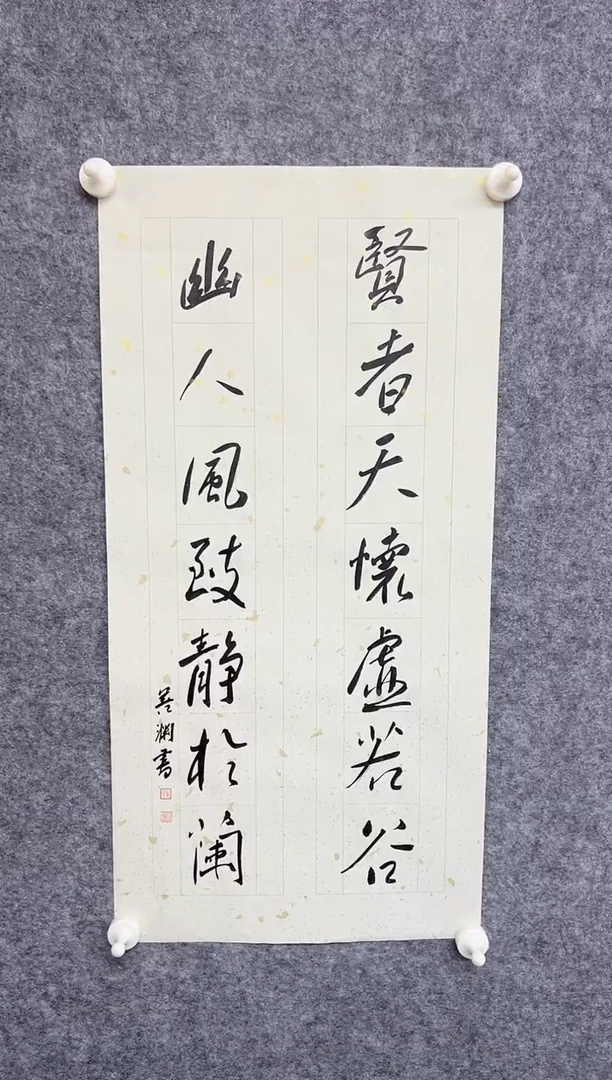 賢者天懷虛若谷
幽人風致靜於蘭
書